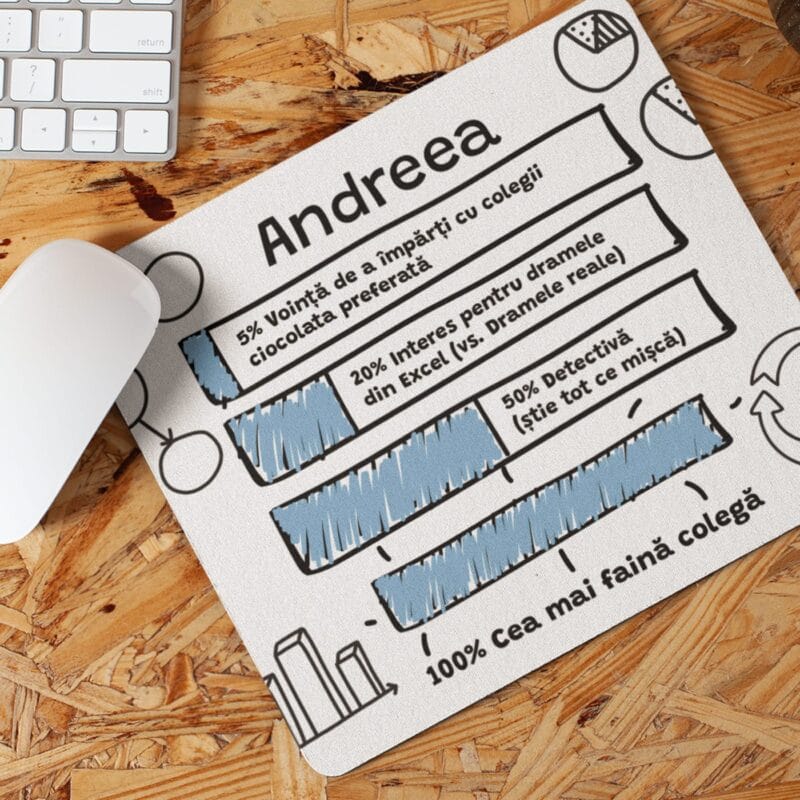 return
shift
Andreea
5% Voință de a împărți cu colegii
ciocolata preferată
20% Interes pentru dramele
din Excel (vs. Dramele reale)
50% Detectivă
(știe tot ce mișcă)
100% Cea mai faină colegă